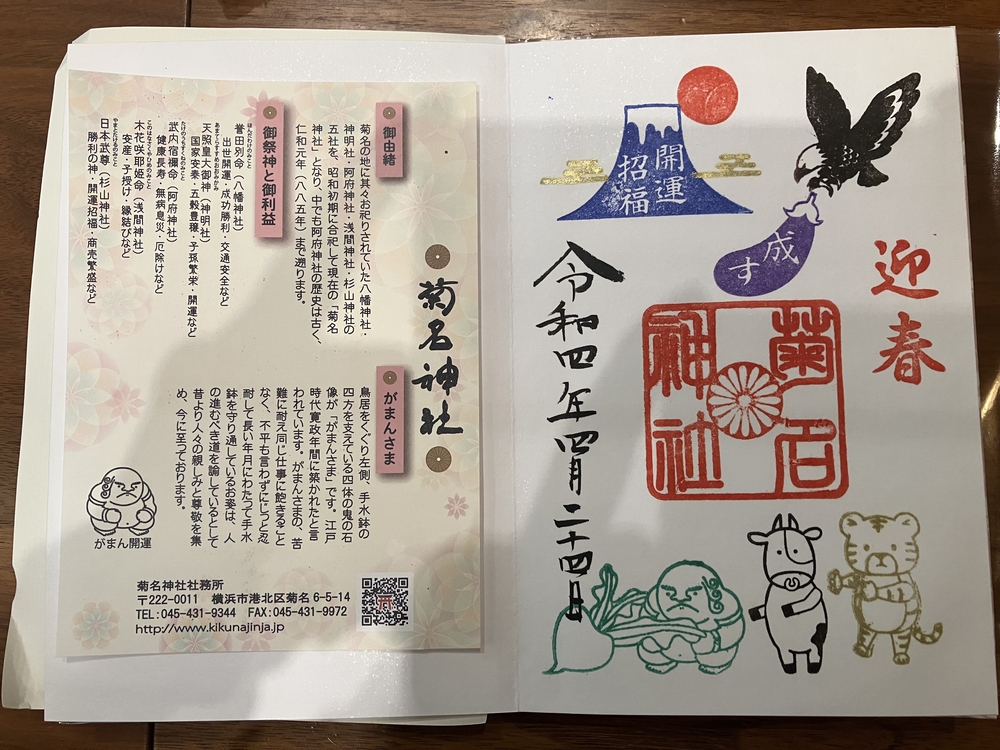 菊名神社
御由緒
菊名の地に其々お祀りされていた八幡神社・
神明社・阿府神社・浅間神社・杉山神社の
五社を、昭和初期に合祀して現在の「菊名
神社」となり、中でも阿府神社の歴史は古く、
仁和元年（八八五年）まで遡ります。
御祭神と御利益
誉田別命（八幡神社）
ほんだわけのみこと
出世開運・成功勝利・交通安全など
天照皇大御神（神明社）
あまてらすすめおおみかみ
国家安泰・五穀豊穣・子孫繁栄・開運など
武内宿禰命（阿府神社）
たけのうちすくねのみこと
健康長寿・無病息災・厄除けなど
木花咲耶姫命（浅間神社）
このはなさくやひめのみこと
安産・子授け・縁結びなど
日本武尊（杉山神社）
やまとたけるのみこと
勝利の神・開運招福・商売繁盛など
がまんさま
鳥居をくぐり左側、手水鉢の
四方を支えている四体の鬼の石
像が「がまんさま」です。江戸
時代寛政年間に築かれたと言
われています。がまんさまの、苦
難に耐え同じ仕事に飽きること
なく、不平も言わずにじっと忍
耐して長い年月にわたって手水
鉢を守り通しているお姿は、人
の進むべき道を諭しているとして
昔より人々の親しみと尊敬を集
め、今に至っております。
がまん開運
菊名神社社務所
〒222-0011　横浜市港北区菊名 6-5-14
TEL:045-431-9344　FAX:045-431-9972
http://www.kikunajinja.jp
迎春
開運
招福
成す
菊名
神社
令和四年四月二十四日